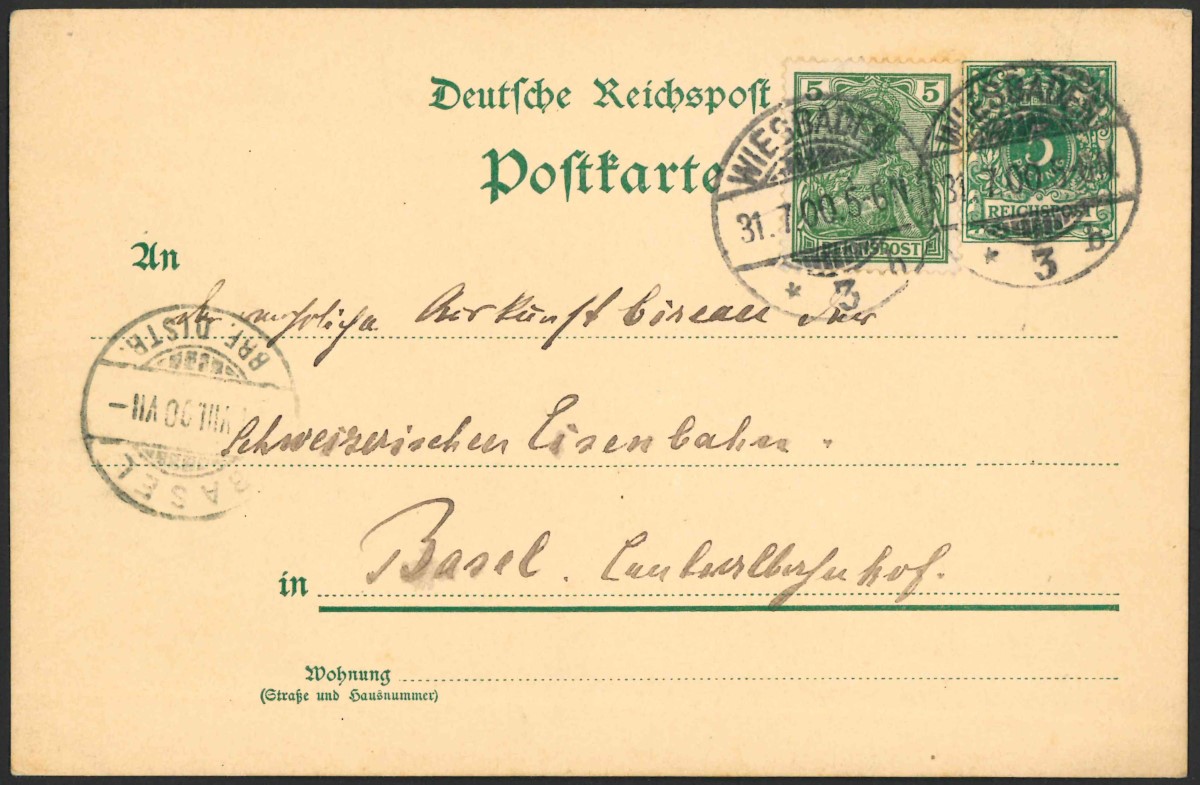 Deutsche Reichspost
Postkarte
5 5
REICHSPOST
5
REICHSPOST
WIESBADEN
31.7.00.5-6N.
* 3 b
WIESBADEN
31.7.00.5-6N.
* 3 b
An
Auskunftbüreau der
Schweizerischen Eisenbahn
in Basel. Centralbahnhof.
BASEL
VIII.00 VII-
BRF. DISTR.
Wohnung
(Straße und Hausnummer)